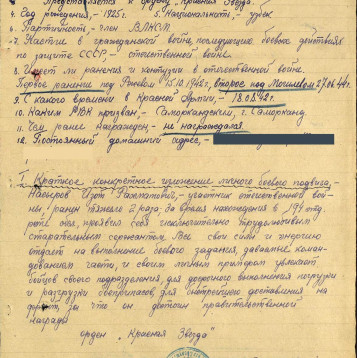 Представляется к ордену "Красная Звезда"
4. Год рождения, - 1925 г. 5. Национальность, - узбек
6. Партийность, - член ВЛКСМ.
7. Участие в гражданской войне, последующих боевых действиях
по защите СССР, - отечественной войне.
8. Имеет ли ранения и контузии в отечественной войне.
Первое ранение под Ржевом 15.10.1942 г. второе под Могилевом 27.06.44 г.
9. С какого времени в Красной Армии, - 18.08.42 г.
10. Каким РВК призван, - Самаркандским, г. Самарканд.
11. Чем ранее награжден, - не награждался.
12. Постоянный домашний адрес, -
I. Краткое конкретное изложение личного боевого подвига, -
участник отечественной вой-
ны, ранен тяжело 2 раза. За время нахождения в
роте проявил себя исключительно трудолюбивым
старательным сержантом. Все свои силы и энергию
отдает на выполнение боевого задания, даваемые коман-
дованием части, и своим личным примером увлекает
бойцов своего подразделения, для досрочного выполнения погрузки
и разгрузки боеприпасов, для доставления на
фронт, за что он достоин правительственной
награды
орден "Красная Звезда"